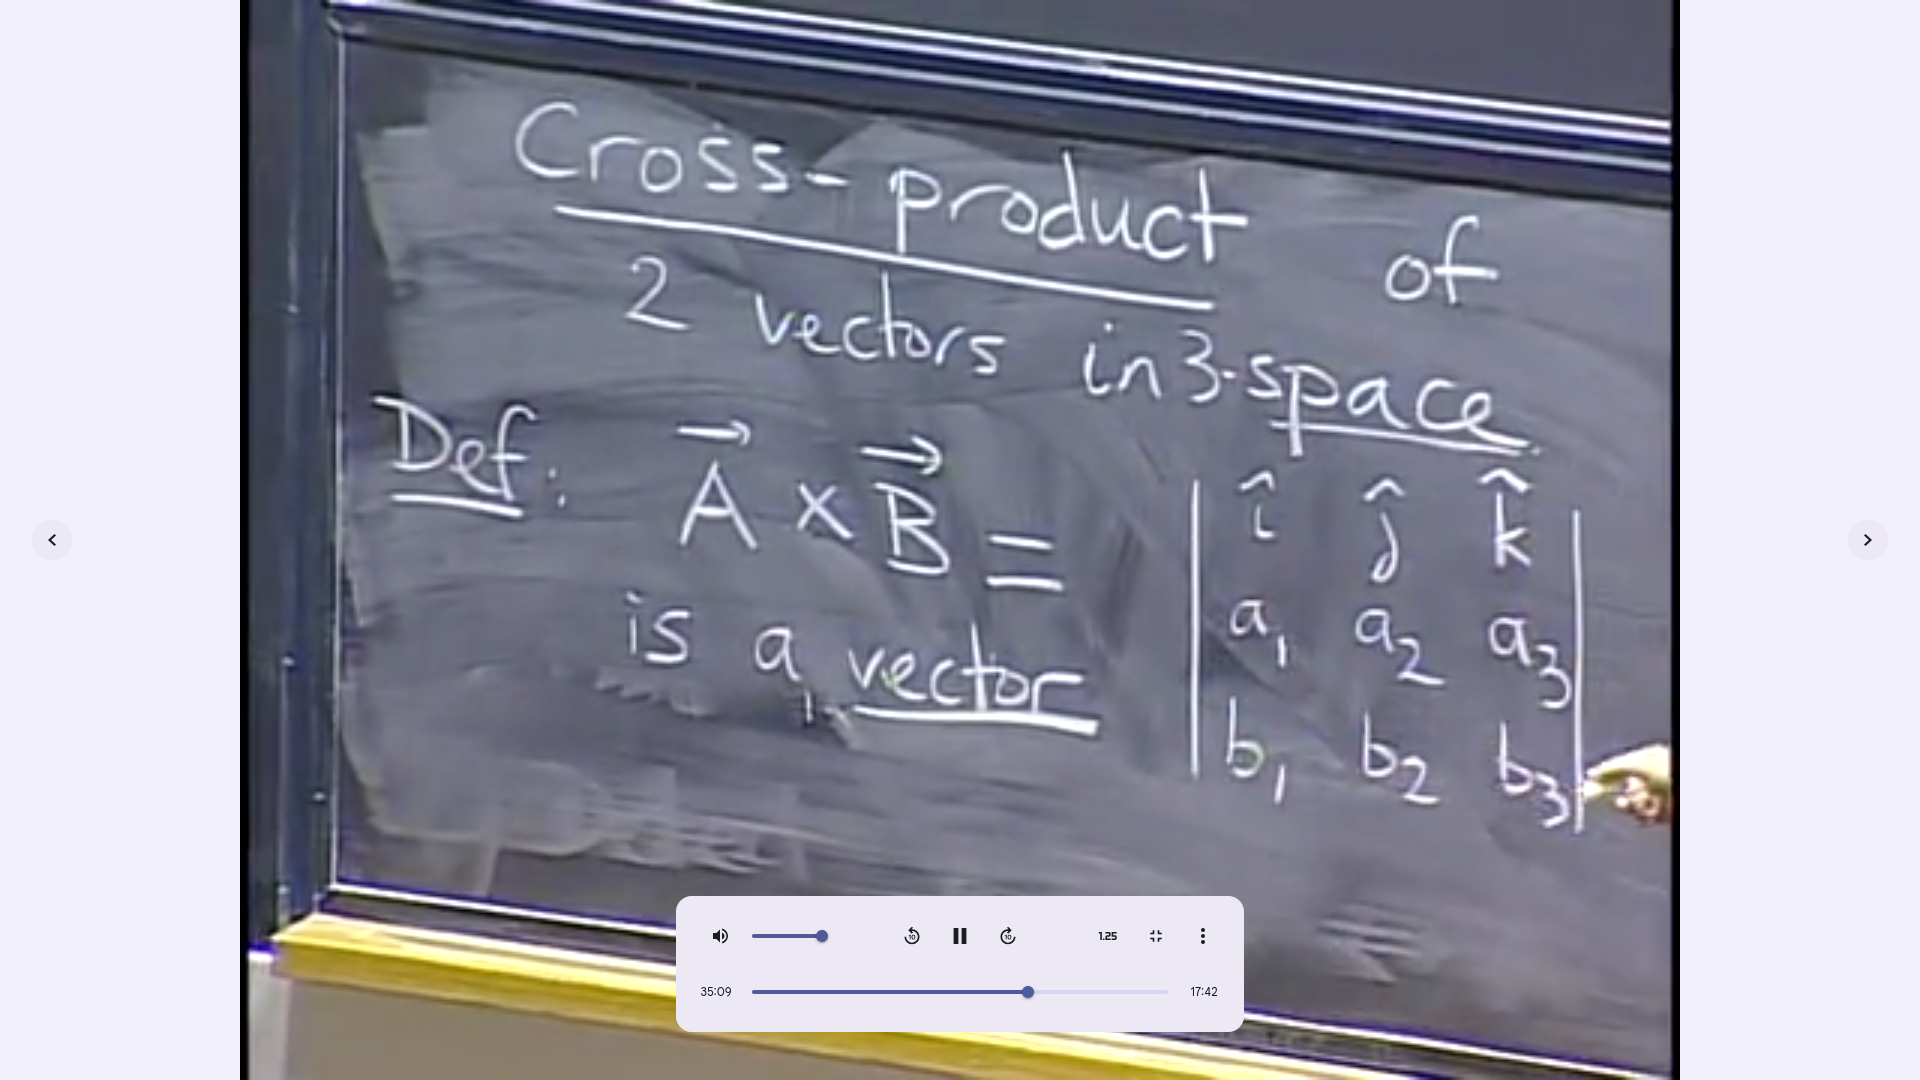 Cross-product of
2 vectors in 3-space
Def: A⃗ × B⃗ = | î ĵ k̂ |
| a₁ a₂ a₃ |
| b₁ b₂ b₃ |
is a vector
1.25
35:09
17:42